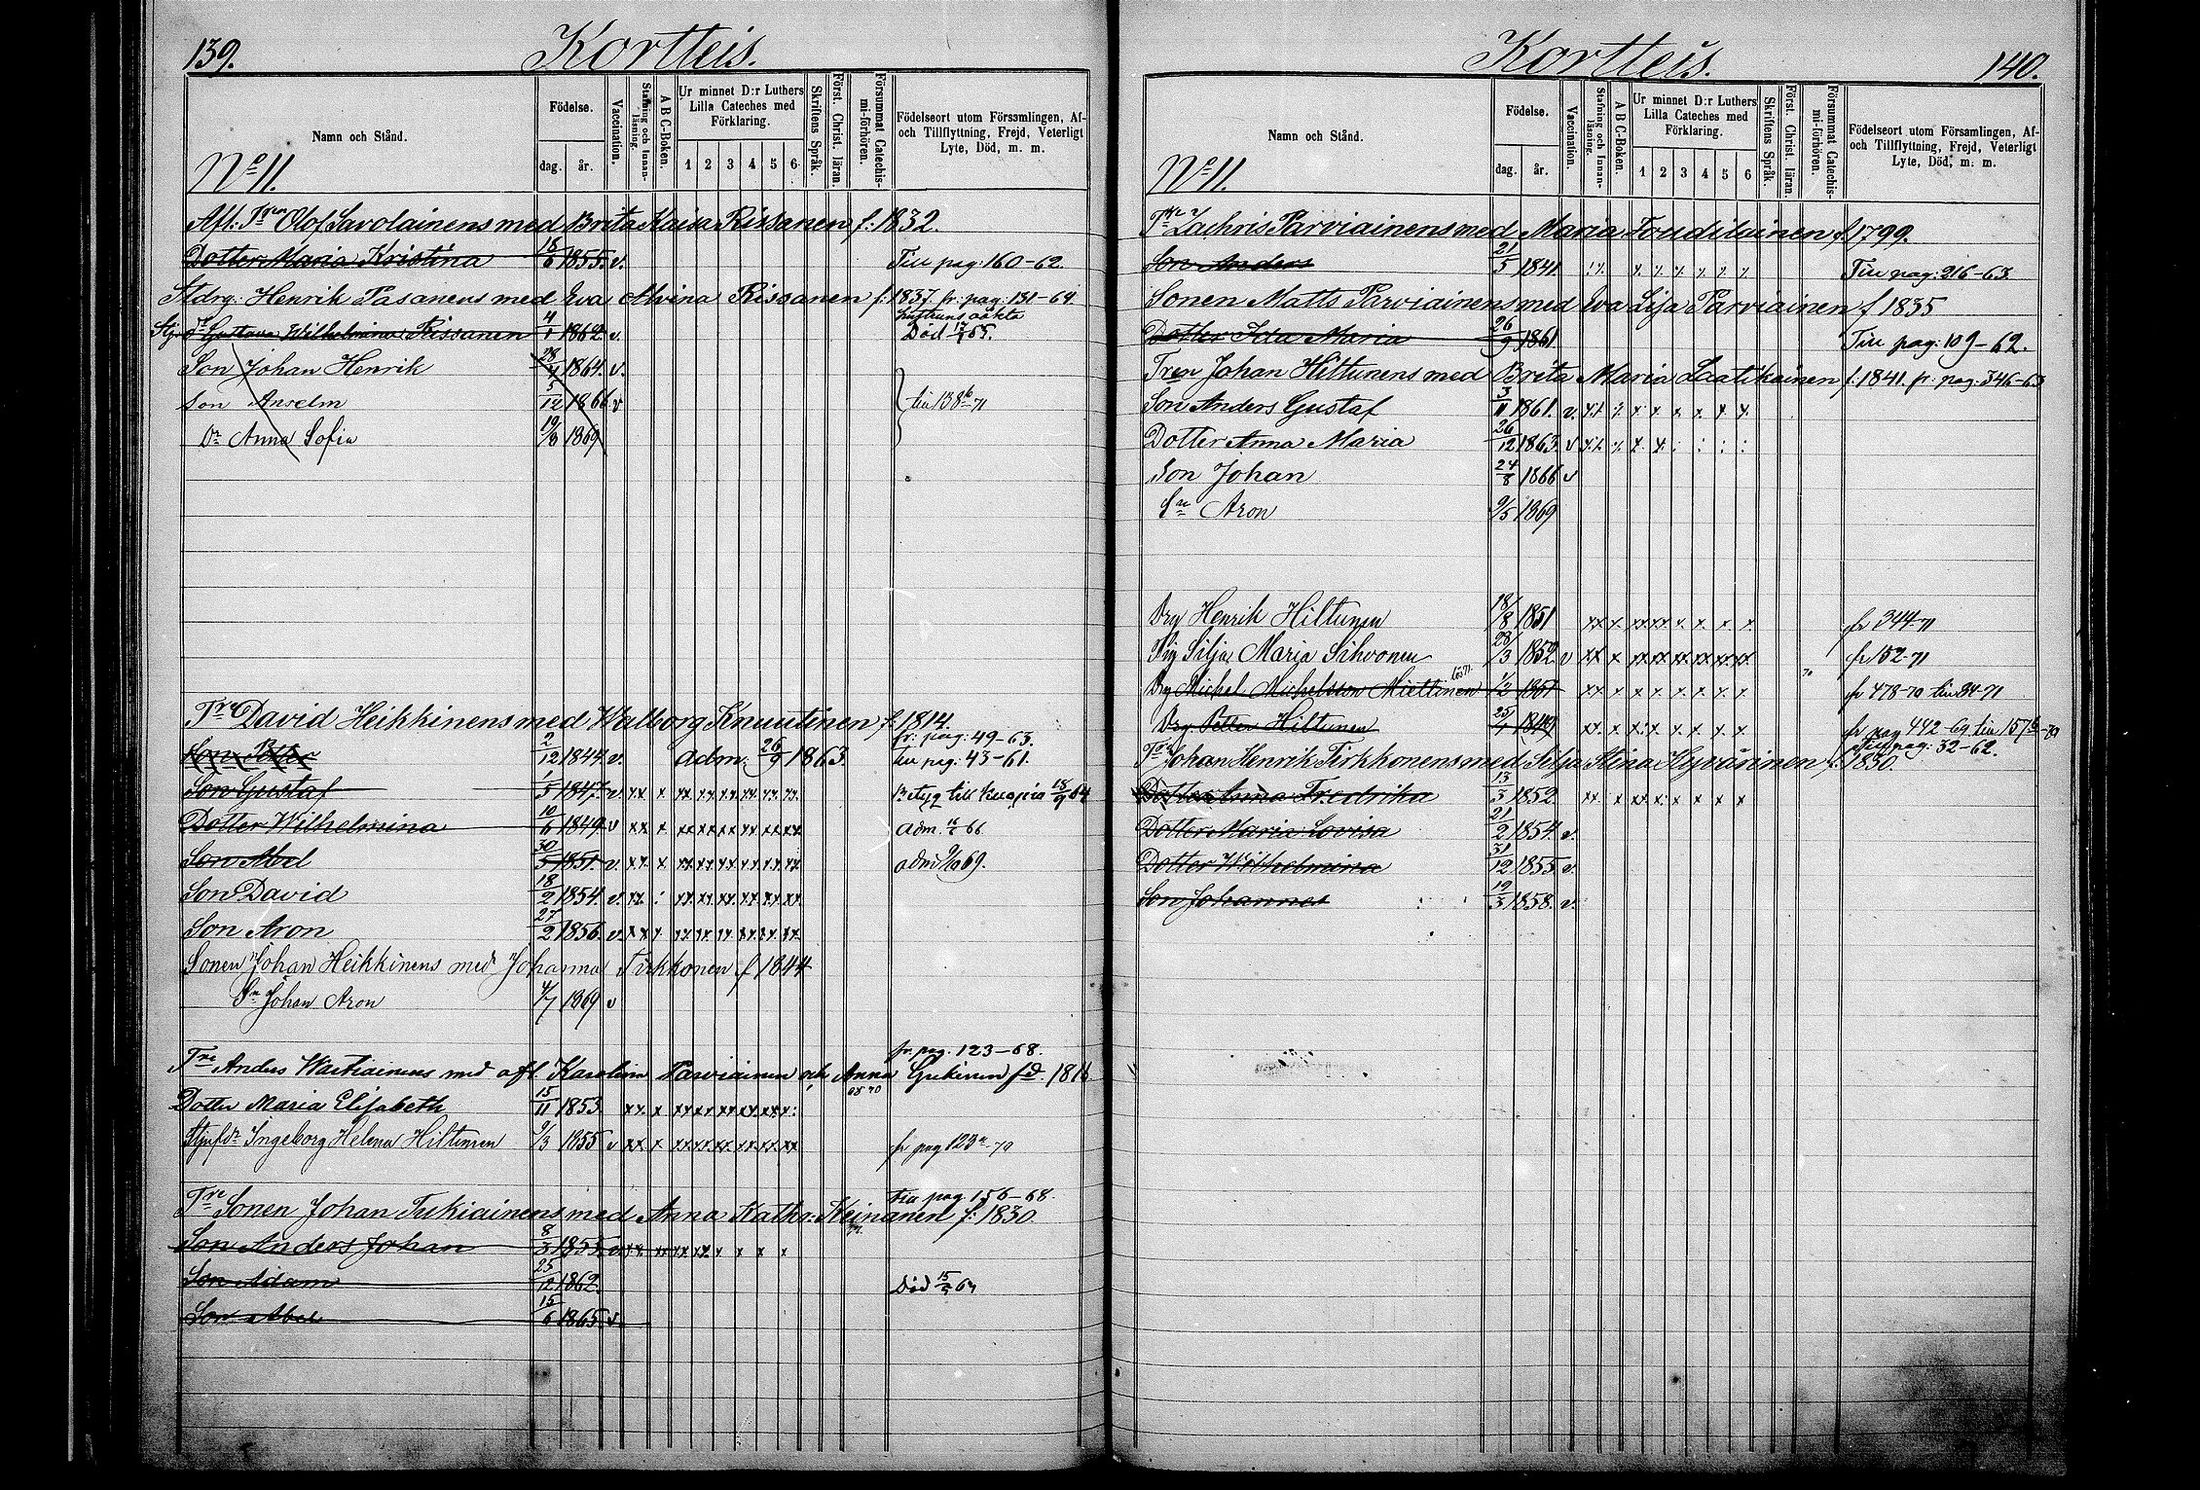 139. Kortteis.
Namn och Stånd.
Födelse.
dag. år.
Vaccination.
Stafning och Innanläsning.
A B C-Boken.
Ur minnet D:r Luthers Lilla Cateches med Förklaring.
1 2 3 4 5 6
Skriftens Språk.
Först. Christ. läran.
Försummat Catechismi-förhören.
Födelseort utom Församlingen, Af- och Tillflyttning, Frejd, Veterligt Lyte, Död, m. m.
No 11.
Afl: Tren Olof Savolainens med Brita Kaisa Rissanen f: 1832.
Dotter Maria Kristina 18/6 1855. v. Till pag: 160-62.
Stdrg: Henrik Pasanens med Eva Alvina Rissanen f: 1837. fr. pag: 131-64.
Stj. dr Gustava Wilhelmina Rissanen 4/1 1862. v. hustruns oäkta Död 65.
Son Johan Henrik 28/4 1864. v.
Son Anselm 5/12 1866 v till 138b-71
Dr Anna Sofia 19/8 1869
Tre David Heikkinens med Walborg Knuutinen f. 1814.
fr: pag: 49-63.
Son Petter 2/12 1844. v. adm: 26/9 1863. till pag: 43-61.
Son Gustaf 1/5 1847. v. xx x xx xx xx xx xx xx Betyg till Kuopio 18/9 64
Dotter Wilhelmina 10/6 1849 v xx x xx xx xx xx xx xx adm. 66
Son Abel 30/5 1851. v. xx x xx xx xx xx xx xx adm 9/10 69.
Son David 18/2 1854. v. xx : xx xx xx xx xx xx
Son Aron 27/2 1856. v. xx x xx xx xx xx xx xx
Sonen Johan Heikkinens med Johanna Tirkkonen f 1844
Sn Johan Aron 4/7 1869 v
fr. pag: 123-68.
Tre Anders Wartiainens med afl. Karolina Parviainen och Anna Grekinen fd. 1816
Dotter Maria Elisabeth 15/11 1853 xx x xx xx xx xx xx x:
Stjufdr Ingeborg Helena Hiltunen 9/3 1855 v xx x xx xx xx xx xx xx fr pag 123a-70
Från pag. 156-68.
Tre Sonen Johan Tukiainens med Anna Kathr: Keinänen f: 1830.
Son Anders Johan 8/3 1855. v. xx xx xx xx x x x x
Son Adam 25/12 1862. Död 15/5 64
Son Abel 15/6 1865. v.
Kortteis. 140.
Namn och Stånd.
Födelse.
dag. år.
Vaccination.
Stafning och Innanläsning.
A B C-Boken.
Ur minnet D:r Luthers Lilla Cateches med Förklaring.
1 2 3 4 5 6
Skriftens Språk.
Först. Christ. läran.
Försummat Catechismi-förhören.
Födelseort utom Församlingen, Af- och Tillflyttning, Frejd, Veterligt Lyte, Död, m. m.
No 11.
Tre Zachris Parviainens med Maria Foudilainen f. 1799.
Son Anders 21/5 1841. Till pag: 216-63
Sonen Matts Parviainens med Eva Lisa Parviainen f 1835
Dotter Ida Maria 26/9 1861. Till pag: 109-62.
Tren Johan Hiltunens med Brita Maria Laatikainen f. 1841. fr. pag: 346-63
Son Anders Gustaf 3/11 1861. v. x x x x x x
Dotter Anna Maria 26/12 1863. v x x : : : :
Son Johan 24/8 1866 v
Sn Aron 9/5 1869
Drg Henrik Hiltunen 18/8 1851 xx x xx xx x. x. x x. fr 344-71
Pig Silja Maria Sihvonen 28/3 1852 v xx x xx xx xx xx xx xx fr 152-71
Drg Michel Michelsson Miettinen 1/2 1851 xx x x. x. x. x. x. fr 478-70 till 94-71
Drg Petter Hiltunen 25/1 1849 xx. x x: x x. x. x. x. fr pag 442-69 till 157b-70
Till pag: 32-62.
Tre Johan Henrik Tirkkonens med Silja Stina Hyvärinen f. 1830.
Dotter Anna Fredrika 13/3 1852. xx x xx x x x x x
Dotter Maria Lovisa 21/2 1854. v.
Dotter Wilhelmina 31/12 1855. v.
Son Johannes 19/3 1858. v.